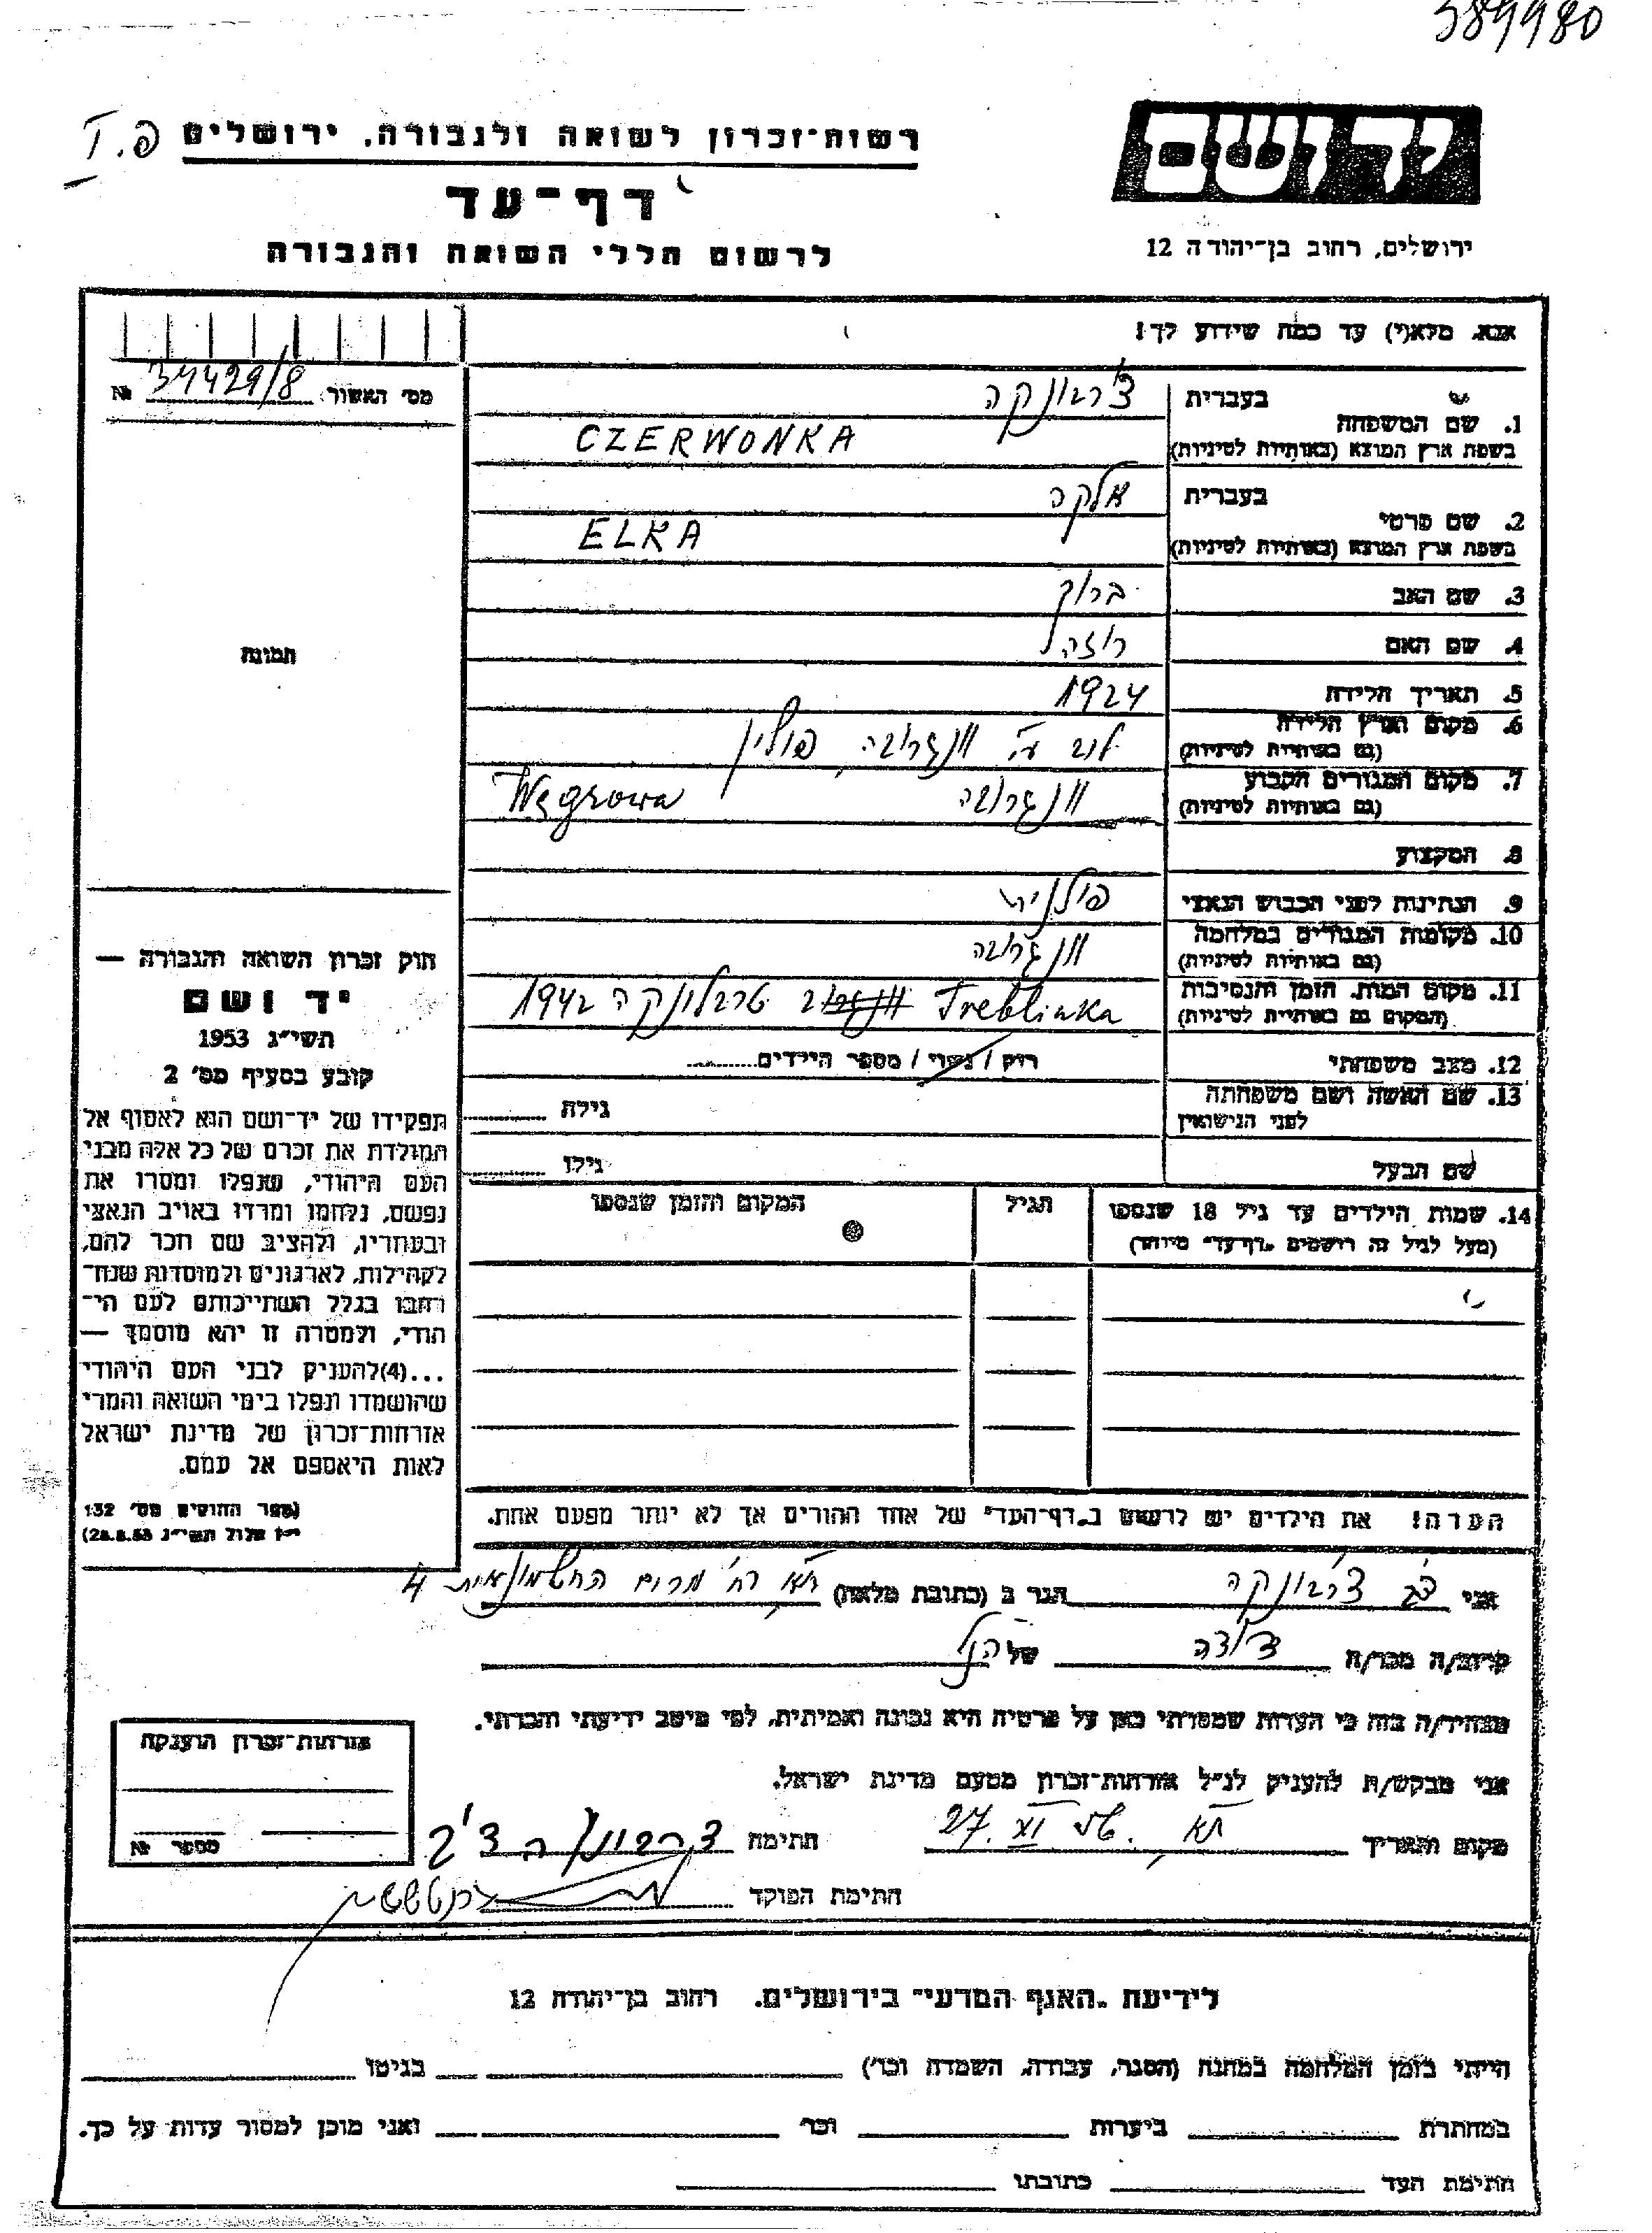 389980
יד ושם
רשות־זכרון לשואה ולגבורה, ירושלים
דף־עד
לרשום חללי השואה והגבורה
ירושלים, רחוב בן־יהודה 12
אנא, מלא(י) עד כמה שידוע לך!
מס' האשור № 34429/8
בעברית צ'רבונקה
1. שם המשפחה
בשפת ארץ המוצא (באותיות לטיניות) CZERWONKA
בעברית אלקה
2. שם פרטי
בשפת ארץ המוצא (באותיות לטיניות) ELKA
3. שם האב ברוך
4. שם האם רוזה
5. תאריך הלידה 1924
6. מקום וארץ הלידה
(גם באותיות לטיניות) ונגרובה, פולין
7. מקום המגורים הקבוע
(גם באותיות לטיניות) ונגרובה Węgrowa
8. המקצוע
9. הנתינות לפני הכבוש הנאצי פולנית
10. מקומות המגורים במלחמה
(גם באותיות לטיניות) ונגרובה
11. מקום המות, הזמן והנסיבות
(המקום גם באותיות לטיניות) Treblinka טרבלינקה 1942
12. מצב משפחתי רוק / נשוי / מספר הילדים
13. שם האשה ושם משפחתה
לפני הנישואין גילה
שם הבעל גילו
14. שמות הילדים עד גיל 18 שנספו
(מעל לגיל זה רושמים „דף־עד" מיוחד)
הגיל
המקום והזמן שנספו
תמונה
חוק זכרון השואה והגבורה —
יד ושם
תשי"ג 1953
קובע בסעיף מס' 2
תפקידו של יד־ושם הוא לאסוף אל
המולדת את זכרם של כל אלה מבני
העם היהודי, שנפלו ומסרו את
נפשם, נלחמו ומרדו באויב הנאצי
ובעוזריו, ולהציב שם וזכר להם,
לקהילות, לארגונים ולמוסדות שנח־
רבו בגלל השתייכותם לעם הי־
הודי, ולמטרה זו יהא מוסמך —
...(4) להעניק לבני העם היהודי
שהושמדו ונפלו בימי השואה והמרי
אזרחות־זכרון של מדינת ישראל
לאות היאספם אל עמם.
(ספר החוקים מס' 132
י"ז אלול תשי"ג 28.8.53)
הערה! את הילדים יש לרשום ב„דף־העד" של אחד ההורים אך לא יותר מפעם אחת.
אני צ'רבונקה הגר ב (כתובת מלאה) ת"א רח' 4
קרוב/ה מכר/ה של הנ"ל
מצהיר/ה בזה כי העדות שמסרתי כאן על פרטיה היא נכונה ואמיתית, לפי מיטב ידיעתי והכרתי.
אני מבקש/ת להעניק לנ"ל אזרחות־זכרון מטעם מדינת ישראל.
מקום ותאריך ת"א, 27. XI חתימה
חתימת הפוקד
אזרחות־זכרון הוענקה
מספר №
לידיעת „האגף המדעי" בירושלים, רחוב בן־יהודה 12
הייתי בזמן המלחמה במחנה (הסגר, עבודה, השמדה וכו') בגיטו
במחתרת ביערות וכו' ואני מוכן למסור עדות על כך.
חתימת העד כתובתו